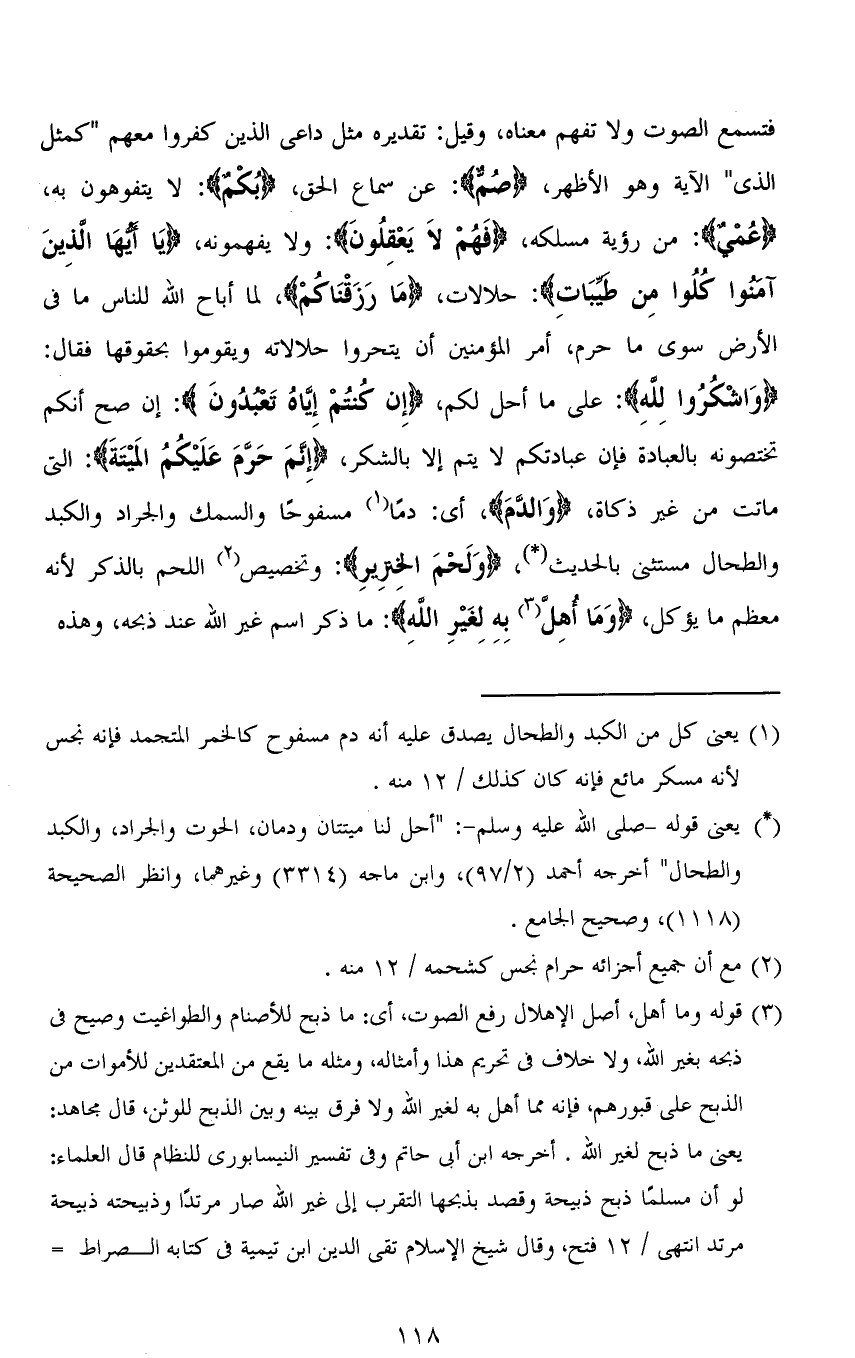 فتسمع الصوت ولا تفهم معناه، وقيل: تقديره مثل داعى الذين كفروا معهم "كمثل
الذى" الآية وهو الأظهر، ﴿صُمٌّ﴾: عن سماع الحق، ﴿بُكْمٌ﴾: لا يتفوهون به،
﴿عُمْيٌ﴾: من رؤية مسلكه، ﴿فَهُمْ لاَ يَعْقِلُونَ﴾: ولا يفهمونه، ﴿يَا أَيُّهَا الَّذِينَ
آمَنُوا كُلُوا مِن طَيِّبَاتِ﴾: حلالات، ﴿مَا رَزَقْنَاكُمْ﴾، لما أباح الله للناس ما فى
الأرض سوى ما حرم، أمر المؤمنين أن يتحروا حلالاته ويقوموا بحقوقها فقال:
﴿وَاشْكُرُوا لِلَّهِ﴾: على ما أحل لكم، ﴿إِن كُنتُمْ إِيَّاهُ تَعْبُدُونَ ﴾: إن صح أنكم
تختصونه بالعبادة فإن عبادتكم لا يتم إلا بالشكر، ﴿إِنَّمَ حَرَّمَ عَلَيْكُمُ المَيْتَةَ﴾: التى
ماتت من غير ذكاة، ﴿وَالدَّمَ﴾، أى: دمًا(١) مسفوحًا والسمك والجراد والكبد
والطحال مستثنى بالحديث(*)، ﴿وَلَحْمَ الخِنزِيرِ﴾: وتخصيص(٢) اللحم بالذكر لأنه
معظم ما يؤكل، ﴿وَمَا أُهِلَّ(٣) بِهِ لِغَيْرِ اللَّهِ﴾: ما ذكر اسم غير الله عند ذبحه، وهذه
(١) يعنى كل من الكبد والطحال يصدق عليه أنه دم مسفوح كالخمر المتجمد فإنه نجس
لأنه مسكر مائع فإنه كان كذلك / ١٢ منه .
(*) يعنى قوله -صلى الله عليه وسلم-: "أحل لنا ميتتان ودمان، الحوت والجراد، والكبد
والطحال" أخرجه أحمد (٩٧/٢)، وابن ماجه (٣٣١٤) وغيرهما، وانظر الصحيحة
(١١١٨)، وصحيح الجامع .
(٢) مع أن جميع أجزائه حرام نجس كشحمه / ١٢ منه .
(٣) قوله وما أهل، أصل الإهلال رفع الصوت، أى: ما ذبح للأصنام والطواغيت وصيح فى
ذبحه بغير الله، ولا خلاف فى تحريم هذا وأمثاله، ومثله ما يقع من المعتقدين للأموات من
الذبح على قبورهم، فإنه مما أهل به لغير الله ولا فرق بينه وبين الذبح للوثن، قال مجاهد:
يعنى ما ذبح لغير الله . أخرجه ابن أبى حاتم وفى تفسير النيسابورى للنظام قال العلماء:
لو أن مسلمًا ذبح ذبيحة وقصد بذبحها التقرب إلى غير الله صار مرتدًا وذبيحته ذبيحة
مرتد انتهى / ١٢ فتح، وقال شيخ الإسلام تقى الدين ابن تيمية فى كتابه الـــصراط =
١١٨